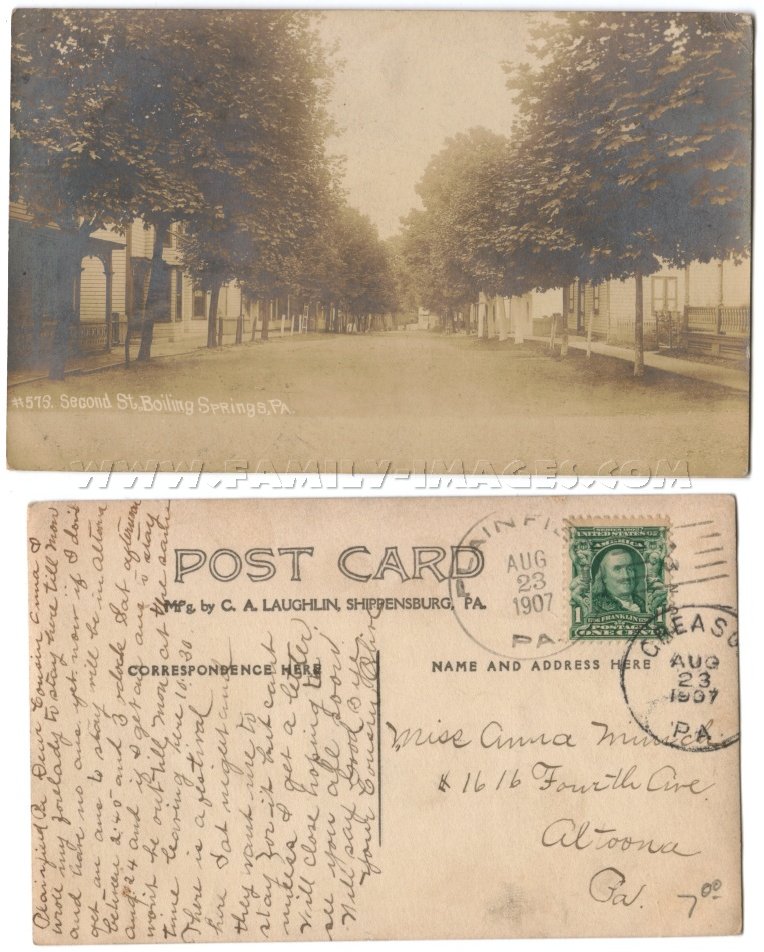 #573. Second St., Boiling Springs, PA.
WWW.FAMILY-IMAGES.COM
POST CARD
Mfg. by C. A. LAUGHLIN, SHIPPENSBURG, PA.
CORRESPONDENCE HERE
NAME AND ADDRESS HERE
AUG
23
1907
PA.
SERIES 1902
UNITED STATES OF
AMERICA
1 FRANKLIN 1
POSTAGE
ONE CENT
AUG
23
1907
PA.
Miss Anna Minich
#1616 Fourth Ave.
Altoona
Pa.
7 00
Plainfield Pa Dear Cousin Anna I
wrote my to stay here till Mon
and have no ans yet. now if I don't
get an ans to stay will be in altoona
between 2.45 and 3 oclock Sat afternoon
aug 24 and if I get an ans to stay
wont be out till mon at the same
time leaving here 10.30.
There is a festival
here Sat night and
they want me to
stay for it but cant
unless I get a letter.
Will close hoping to
see you all soon.
Will say Good Bye
Your Cousin Olive